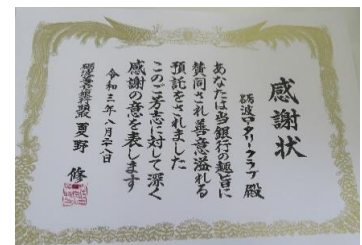 感謝状
砺波ロータリークラブ 殿
あなたは当銀行の趣旨に
賛同され善意溢れる
預託をされました
このご芳志に対して深く
感謝の意を表します
令和三年八月廿八日
砺波善意銀行頭取 夏野 修